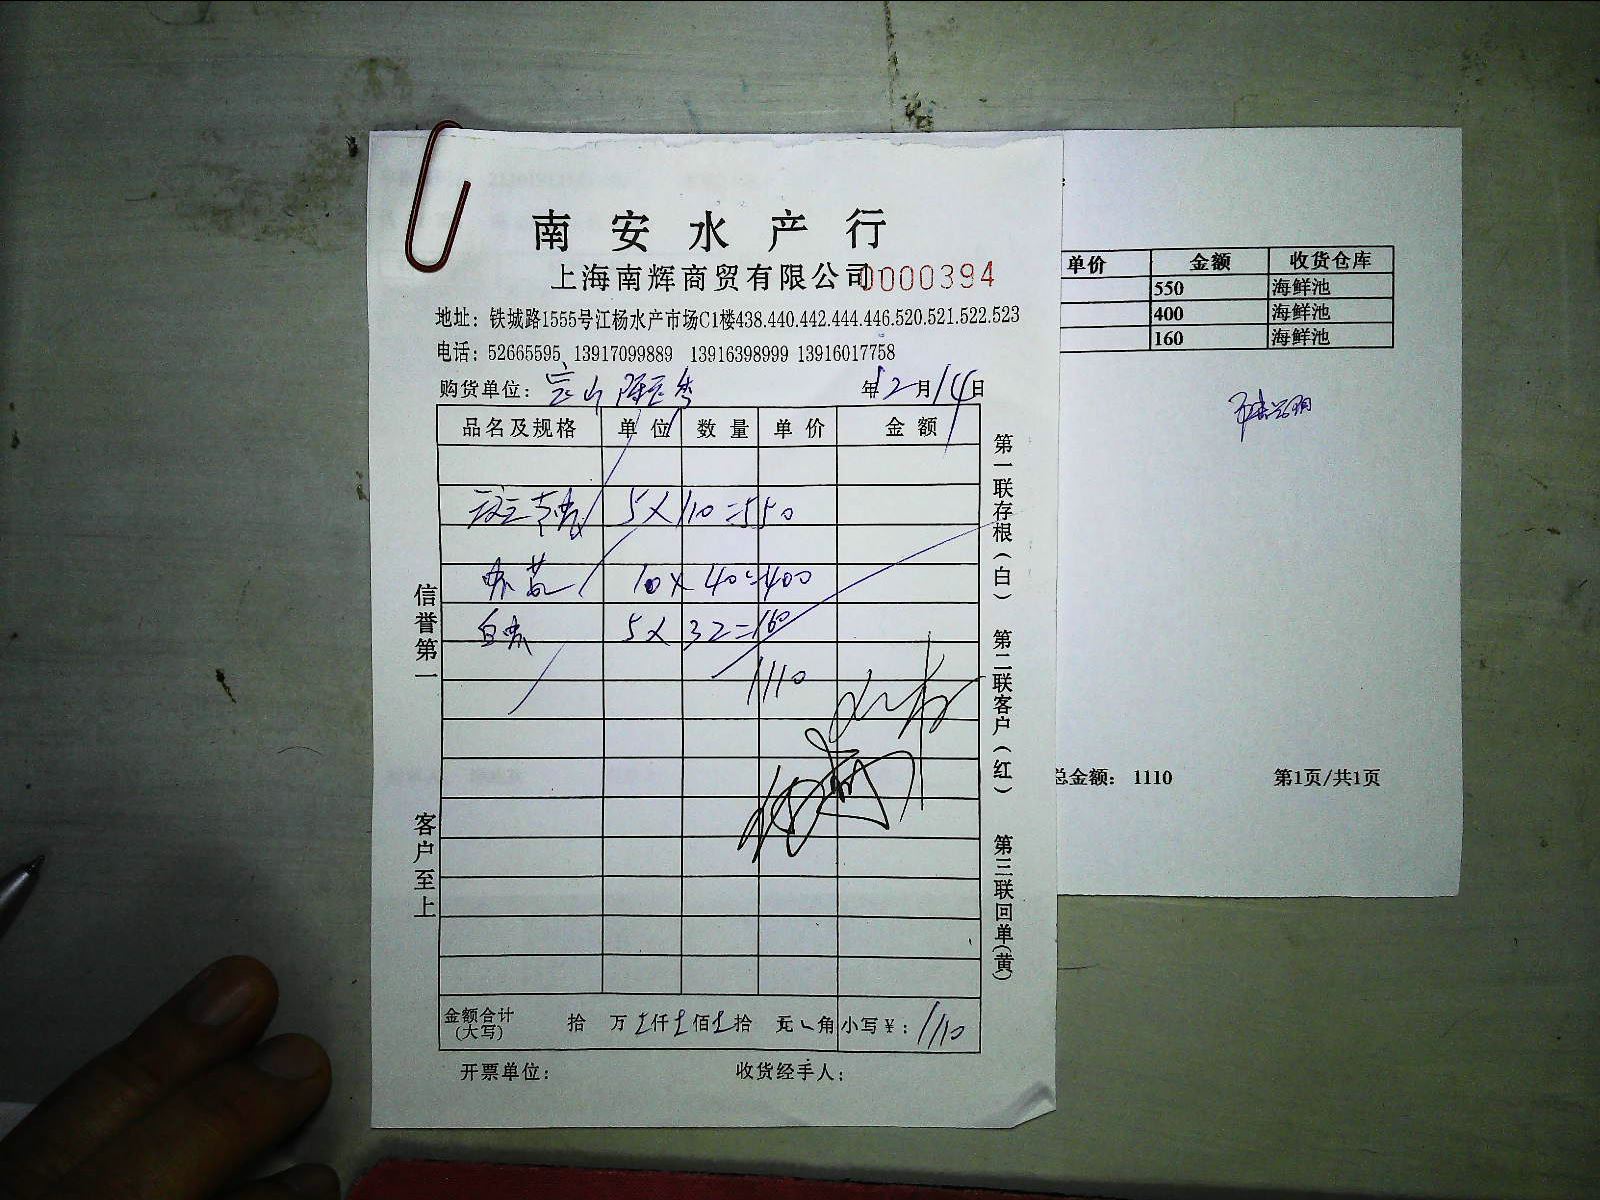 南安水产行
上海南辉商贸有限公司 0000394
地址：铁城路1555号江杨水产市场C1楼438.440.442.444.446.520.521.522.523
电话：52665595 13917099889 13916398999 13916017758
购货单位： 年12月14日
品名及规格 单位 数量 单价 金额
5×110=550
10×40=400
白 5×32=160
1110
金额合计(大写) 拾 万 仟 佰 拾 元 角 小写￥：1110
开票单位： 收货经手人：
信誉第一 客户至上
第一联存根（白） 第二联客户（红） 第三联回单（黄）
单价 金额 收货仓库
550 海鲜池
400 海鲜池
160 海鲜池
总金额： 1110 第1页/共1页